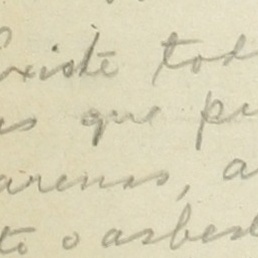 Existe tod
as que pu
arenas, a
to o asbest